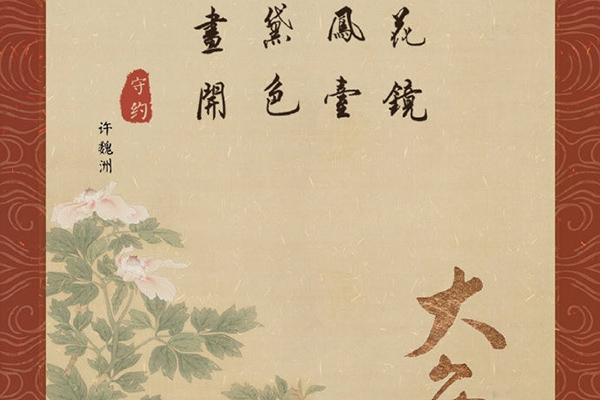 花鏡
鳳臺
黛色
畫開
守约
许魏洲
大